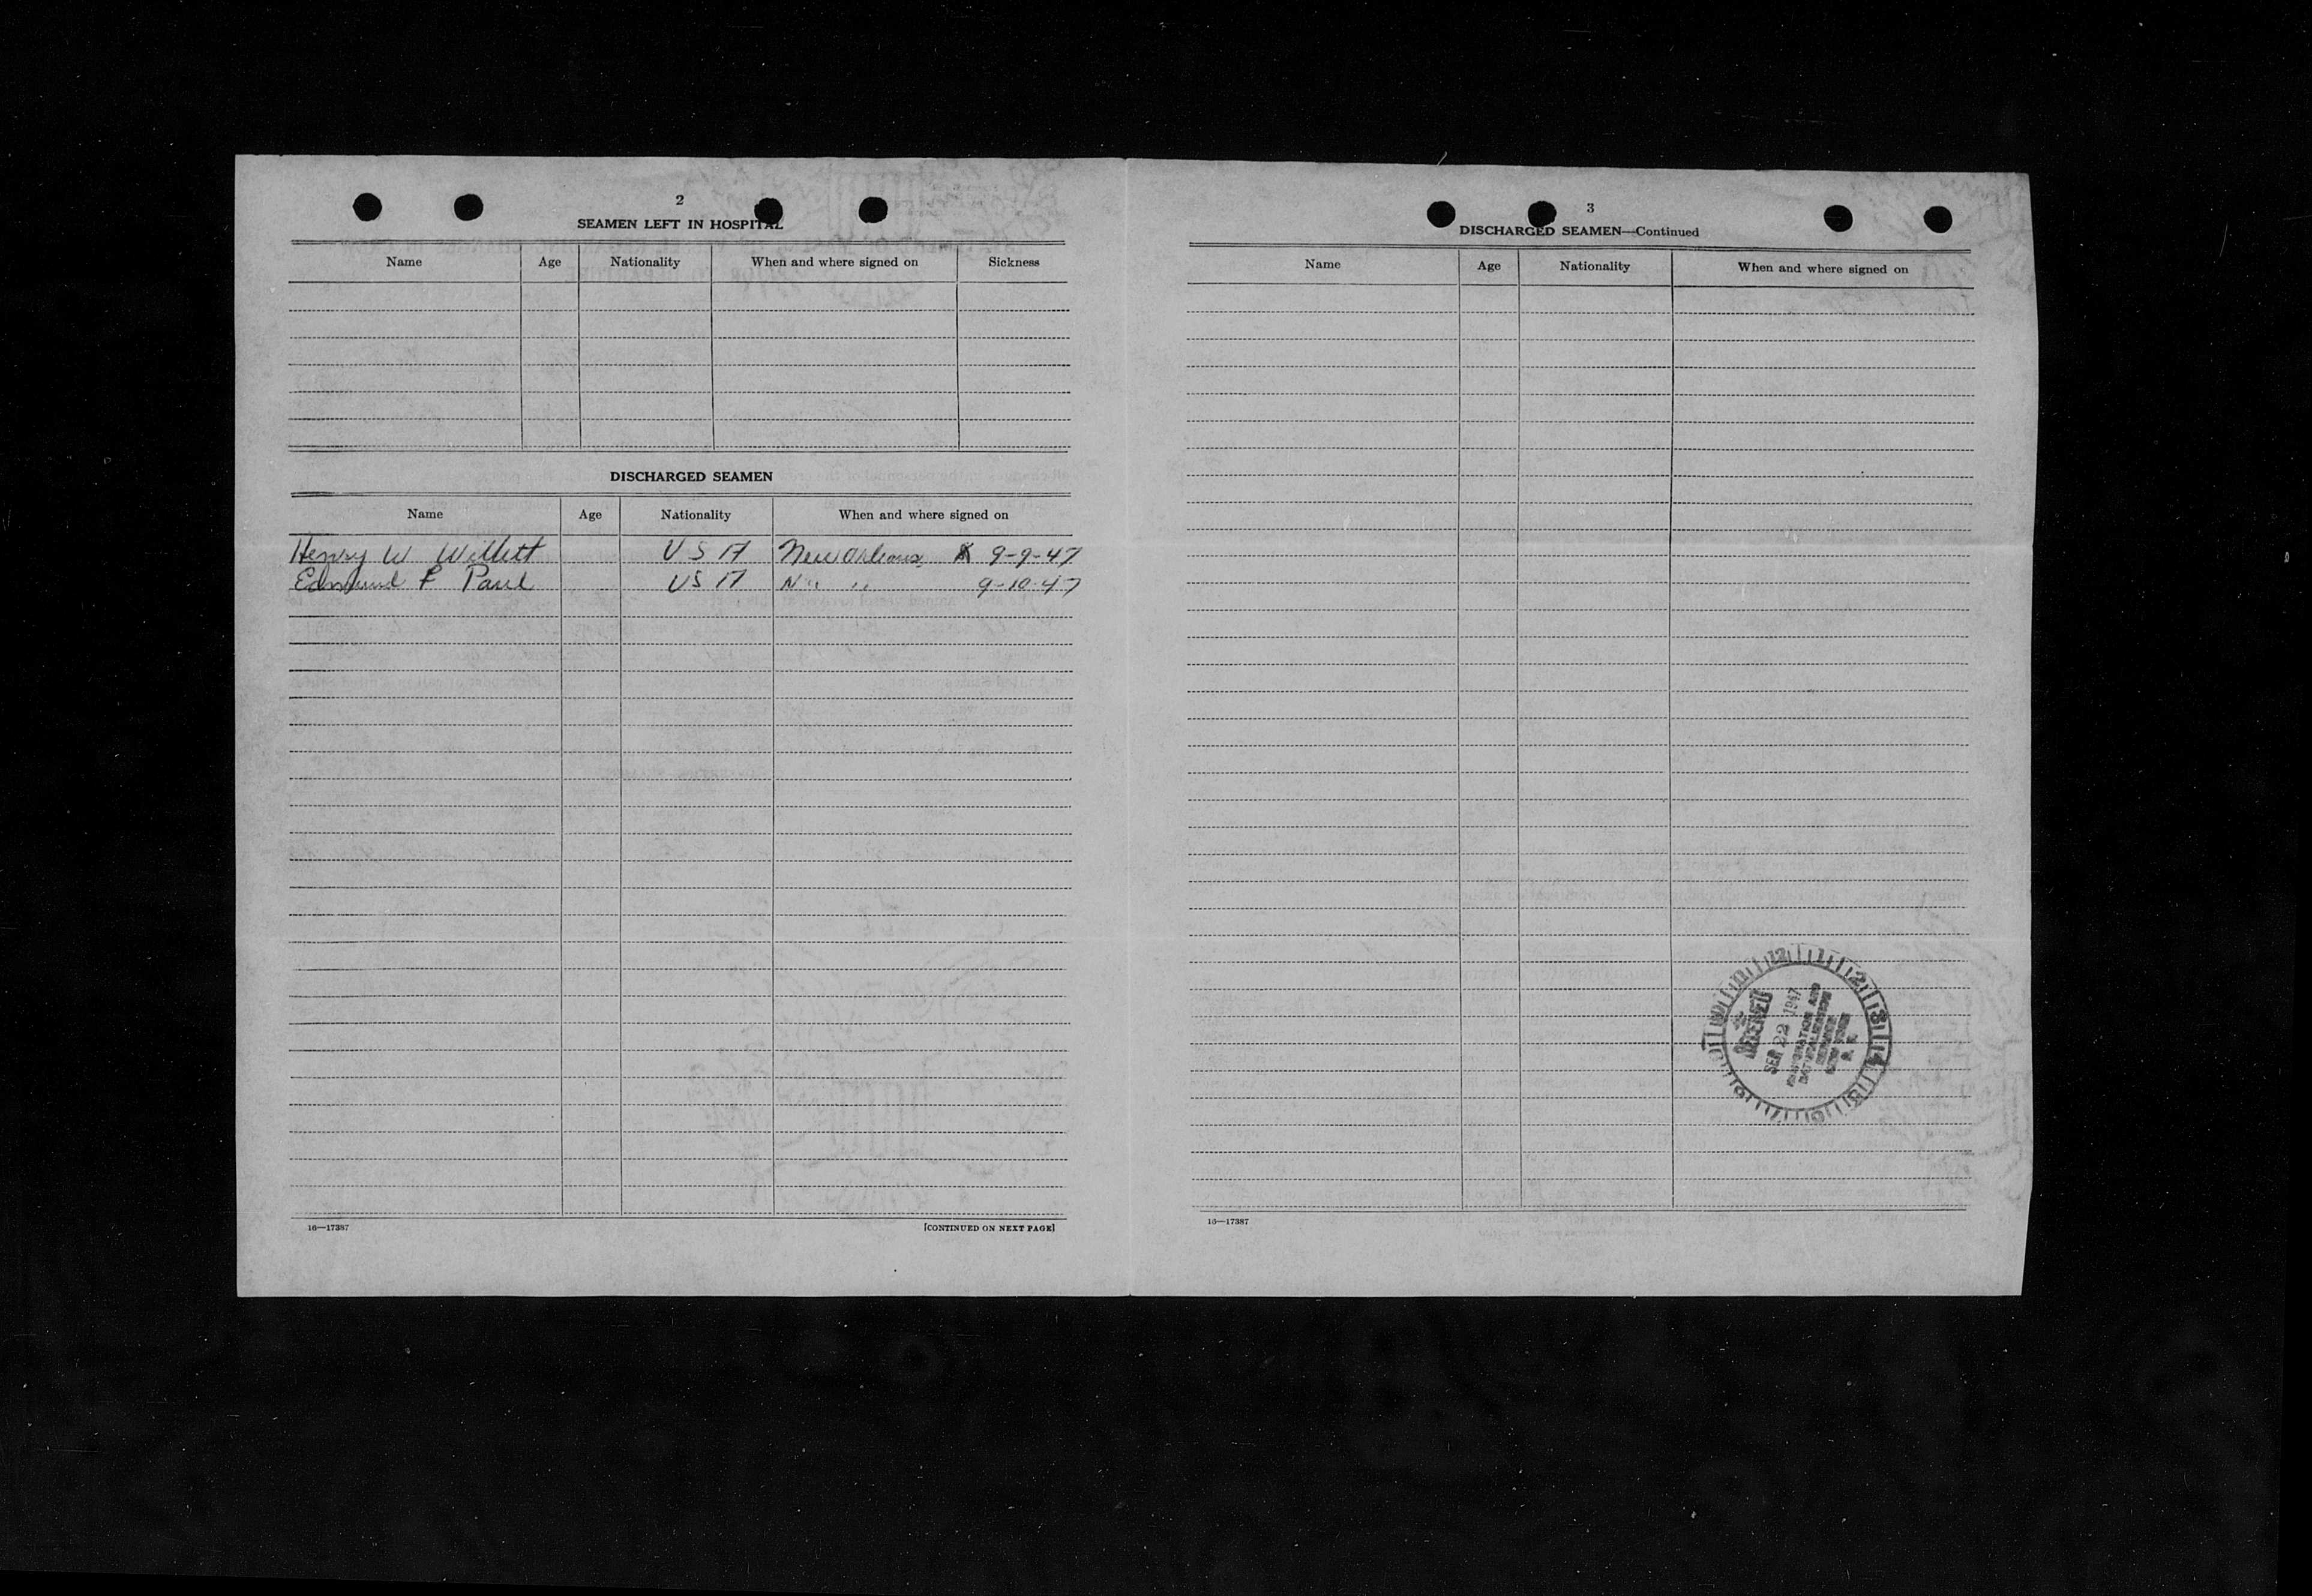 2
SEAMEN LEFT IN HOSPITAL
Name Age Nationality When and where signed on Sickness
DISCHARGED SEAMEN
Name Age Nationality When and where signed on
Henry W Willett USA New Orleans 9-9-47
Edmund F Paul USA N " " 9-10-47
16—17387 [CONTINUED ON NEXT PAGE]
3
DISCHARGED SEAMEN—Continued
Name Age Nationality When and where signed on
RECEIVED
SEP 22 1947
IMMIGRATION AND
NATURALIZATION
SERVICE
NEW YORK
N. Y.
16—17387